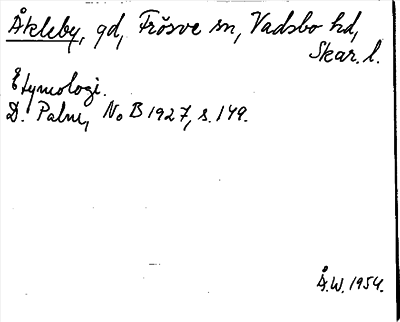 Åkleby, gd, Frösve sn, Vadsbo hd,
Skar. l.
Etymologi.
D. Palm, NoB 1927, s. 149.
Å.W. 1954.